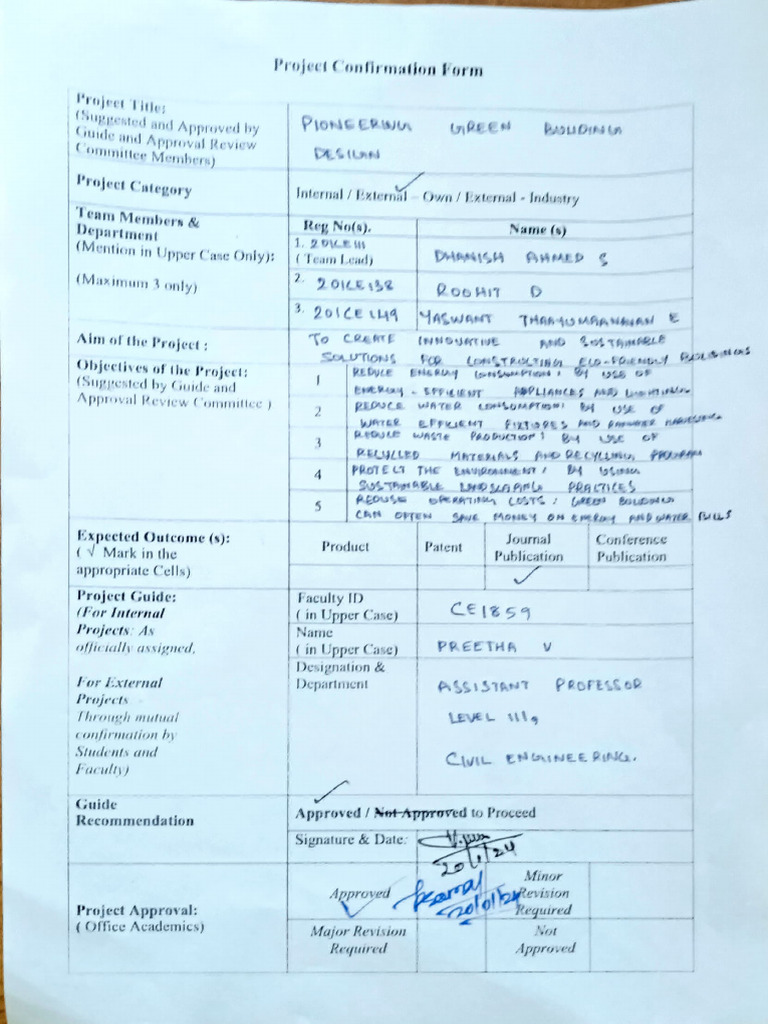 Project Confirmation Form
Project Title:
(Suggested and Approved by
Guide and Approval Review
Committee Members)
PIONEERING GREEN BUILDING
DESIGN
Project Category
Internal / External – Own / External - Industry
Team Members &
Department
(Mention in Upper Case Only):
(Maximum 3 only)
Reg No(s). Name (s)
1. 201CE111
( Team Lead)
DHANISH AHMED S
2. 201CE138 ROOHIT D
3. 201CE149 YASWANT THAAYUMAANAVAN E
Aim of the Project :
TO CREATE INNOVATIVE AND SUSTAINABLE
SOLUTIONS FOR CONSTRUCTING ECO-FRIENDLY BUILDINGS
Objectives of the Project:
(Suggested by Guide and
Approval Review Committee )
1 REDUCE ENERGY CONSUMPTION: BY USE OF
ENERGY - EFFICIENT APPLIANCES AND LIGHTING
2 REDUCE WATER CONSUMPTION: BY USE OF
WATER EFFICIENT FIXTURES AND RAINWATER HARVESTING
3 REDUCE WASTE PRODUCTION: BY USE OF
RECYCLED MATERIALS AND RECYCLING PROGRAM
4 PROTECT THE ENVIRONMENT: BY USING
SUSTAINABLE LANDSCAPING PRACTICES
5 REDUSE OPERATING COSTS: GREEN BUILDING
CAN OFTEN SAVE MONEY ON ENERGY AND WATER BILLS
Expected Outcome (s):
( √ Mark in the
appropriate Cells)
Product Patent Journal Publication Conference Publication
✓
Project Guide:
(For Internal
Projects: As
officially assigned,
For External
Projects
Through mutual
confirmation by
Students and
Faculty)
Faculty ID
( in Upper Case)
CE1859
Name
( in Upper Case)
PREETHA V
Designation &
Department
ASSISTANT PROFESSOR
LEVEL III,
CIVIL ENGINEERING.
Guide
Recommendation
Approved / Not Approved to Proceed
Signature & Date:
20/1/24
Project Approval:
( Office Academics)
Approved
20/01/24
Minor
Revision
Required
Major Revision
Required
Not
Approved